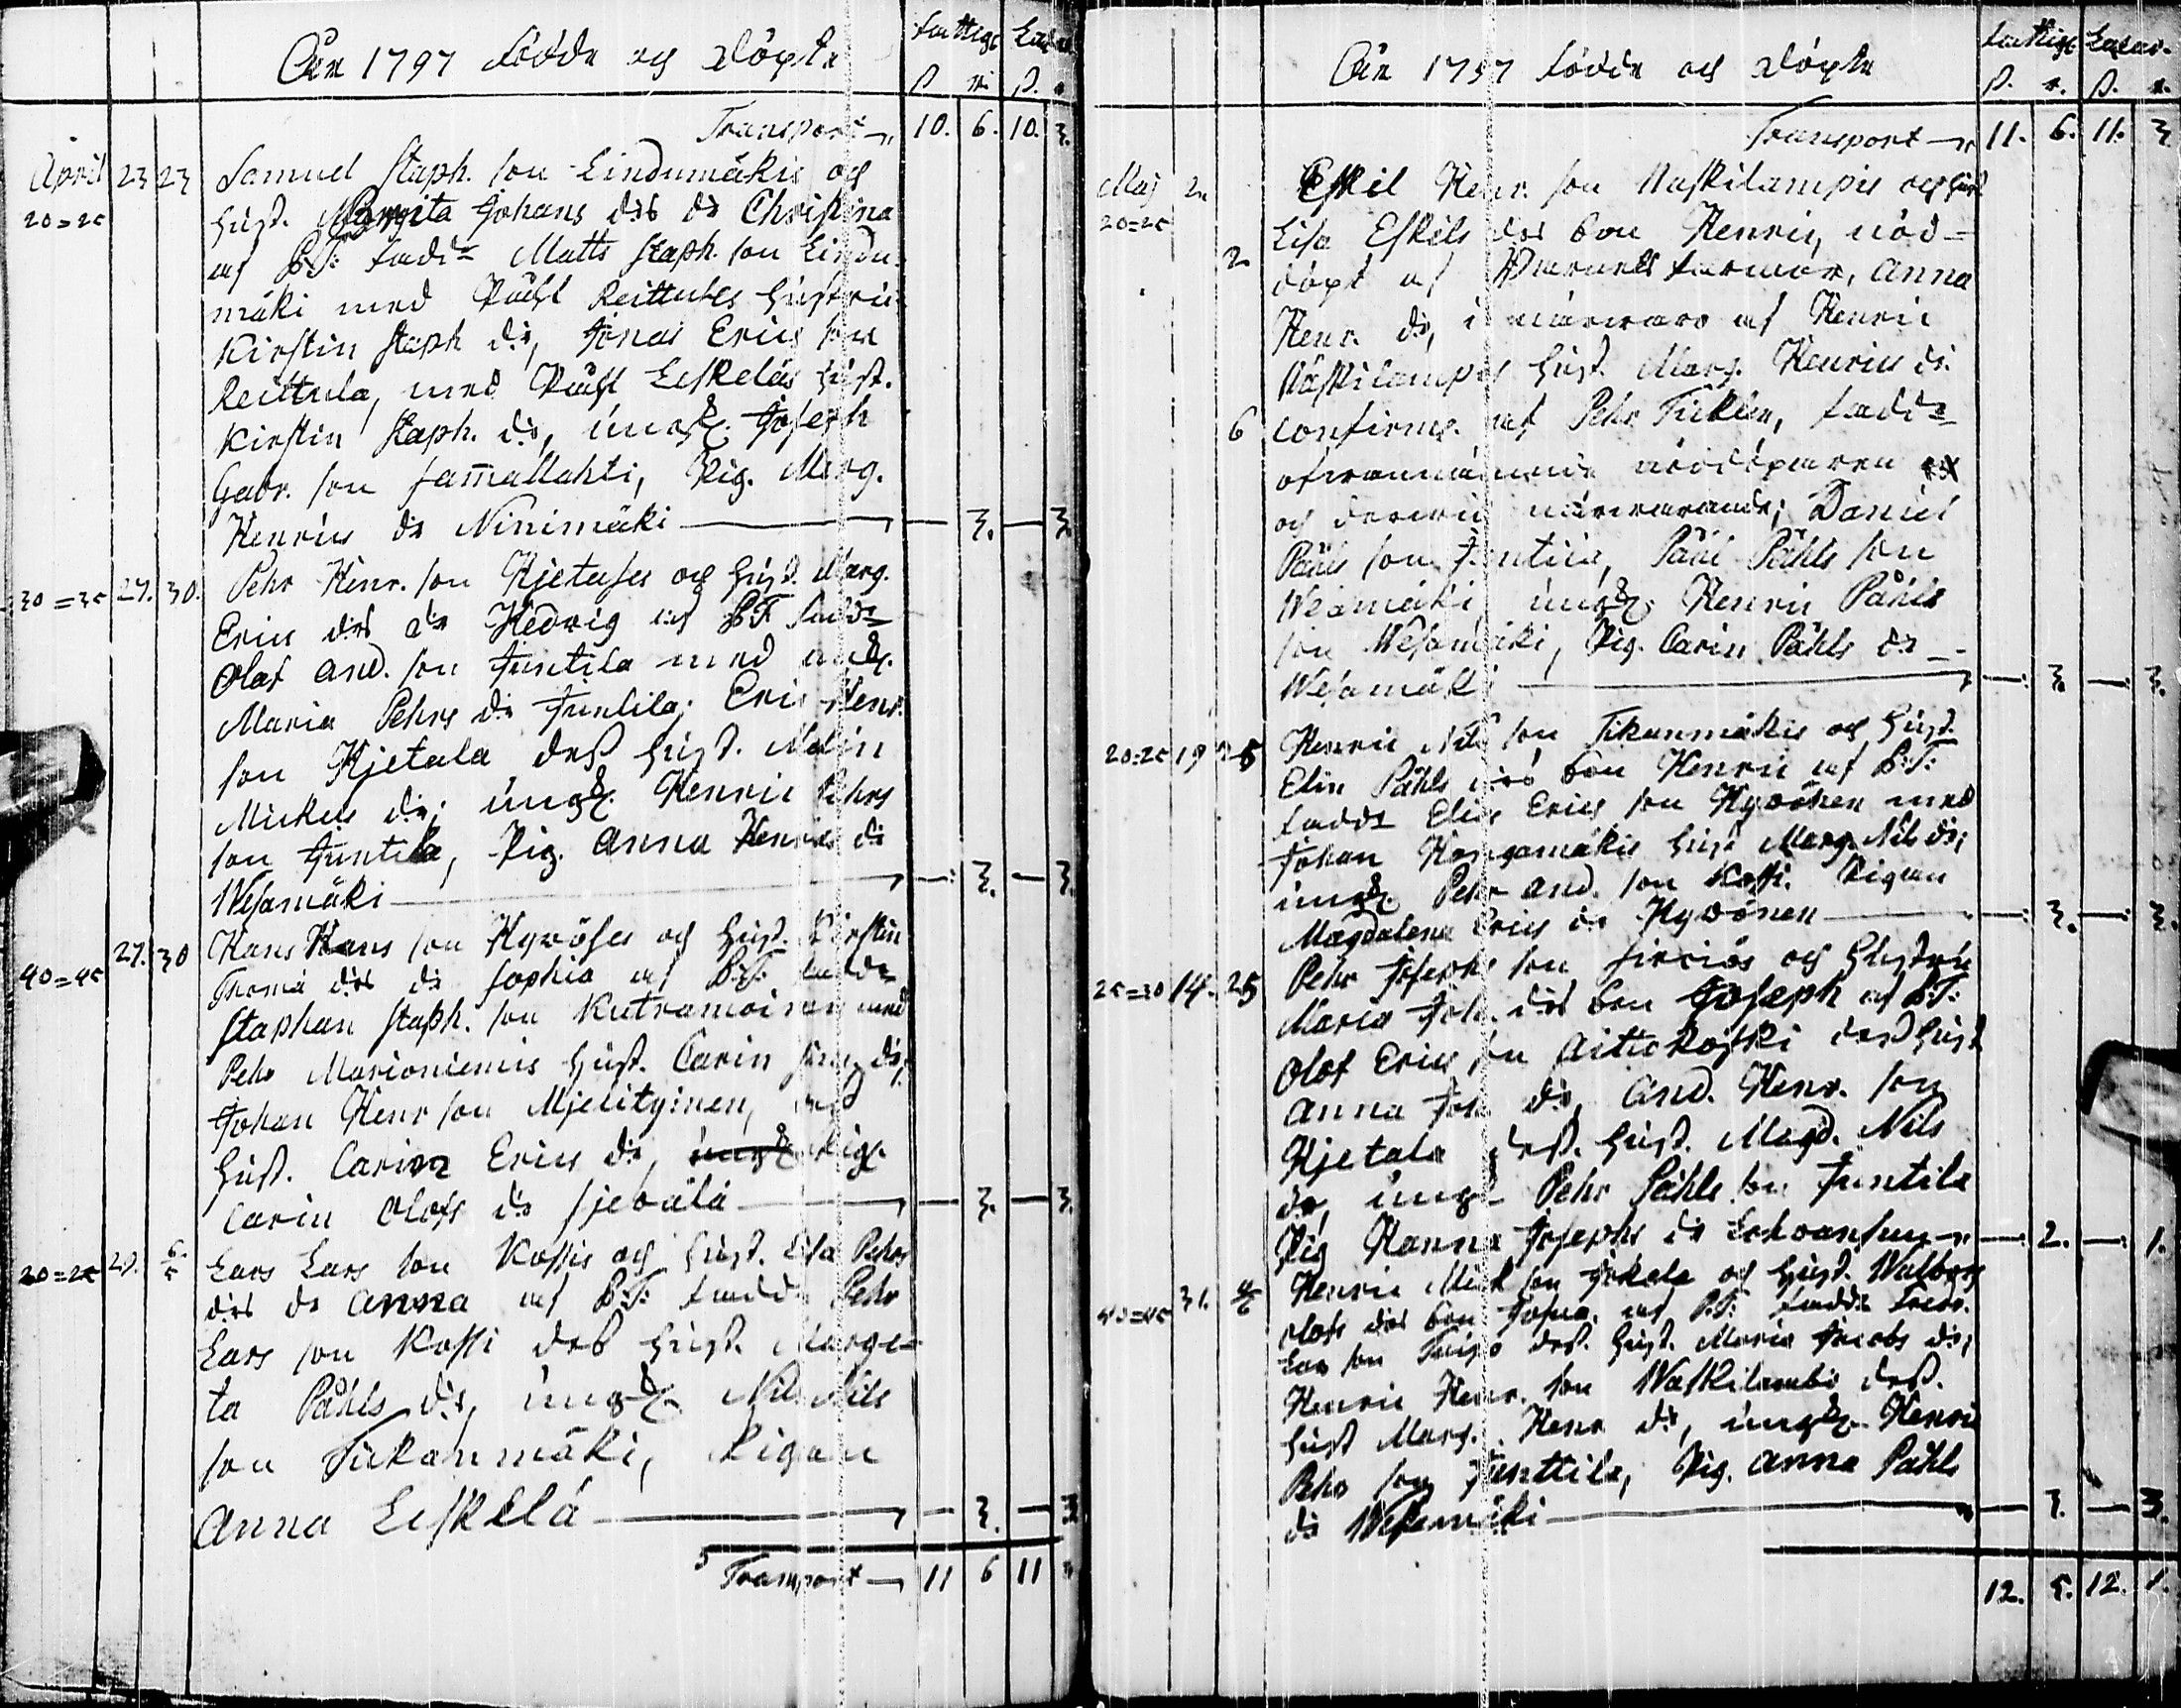 Åhr 1797 Födde och Döpte
Fattige
ß r: ß.
Transport 10. 6. 10. 3.
April 23 23 Samuel Staph. son Lindumäkis och
20=25 hust. Margita Johans dis dr Christina
af B:T: Fadd: Matts Staph. son Lindu
mäki med Påhl Reittules hustru
Kirstin Staph dr, Jonas Erics son
Reittula, med Påhl Leskeläs hust.
Kirstin Staph. dr, ungk. Joseph
Gabr. son Samallahti, Pig. Marg.
Henrics dr Ninimäki — 3. — 3.
30=35 27. 30. Pehr Henr. son Hjetases och hust. Marg.
Erics dis dr Hedvig af B:T Fadd:
Olof And. son Juntila med
Maria Pehrs dr Juntila; Eric Henr.
son Hjetala dess hust. Malin
Mickels dr; ungk. Henric Pehrs
son Juntila, Pig. Anna Henrics dr
Wesamäki — 3. — 3.
40=45 27. 30 Hans Hans son Hyvöses och hust. Kirstin
Thoma dis dr Sophia af B:T: Fadd:
Staphan Staph. son Kutramoinen med
Pehr Marioniemis hust. Carin dr;
Johan Henr son Mjelityinen, dess
hust. Carin Erics dr, Pig.
Carin Olofs dr Sjevälä — 3. — 3.
20=25 29. 6/5 Lars Lars son Kossis och hust. Lisa Pehrs
dis dr Anna af B:T: Fadd: Pehr
Lars son Kossi dess hust. Marge-
ta Påhls dr, ungk. Nils Nils
son Tickanmäki, Pigan
Anna Leskelä — 3. — 3
Transport 11 6 11
Åhr 1797 Födde och Döpte
Fattige
ß. r. ß. r.
Transport 11. 6. 11. 3
Maj 2. Eskil Henr. son Naskilampis och hust
20=25 Lisa Eskils dis son Henric, nöd-
2 döpt af Barnets farmor, Anna
Henr. dr, i närvaro af Henric
Näskilampis hust. Marg. Henrics dr.
6 confirm. af Pehr Ticklén, Fadd:
ofvannämnde nöddöparen
och dervid närvarande; Daniel
Påhls son Juntila, Påhl Påhls son
Wesamäki ungk. Henric Påhls
son Wesamäki, Pig. Carin Påhls dr
Wesamäki — 3. — 3.
20=25 19 25 Henric Nils son Tikanmäkis och hust.
Elin Påhls dis son Henric af B:T:
Fadd: Elias Erics son Hyvönen med
Johan Kangamäkis hust Marg. Nils dr;
ungk. Pehr And. son Kossi. Pigan
Magdalena Erics dr Hyvönen — 3. — 3.
25=30 14. 25 Pehr Josephs son Sirviös och Hustru
Maria Joh. dis son Joseph af B:T:
Olof Erics son Aittokoski dess hust
Anna Joh dr, And. Henr. son
Hjetala dess. hust. Magd. Nils
dr, ungk Pehr Påhls son Juntila
Pig Hanna Josephs dr — 2. — 1.
40=45 31. 4/6 Henric Mick son Jokela och hust. Walborg
Olofs dis son Josua, af B:T: Fadd: Fredr.
Lars son dess. hust. Maria Jacobs dr;
Henric Henr. son Waskilambi dess.
hust Marg. Henr dr, ungk. Henric
Pehrs son Junttila, Pig. Anna Påhls
dr Wesamäki — 3. — 3.
12. 5. 12. 1.